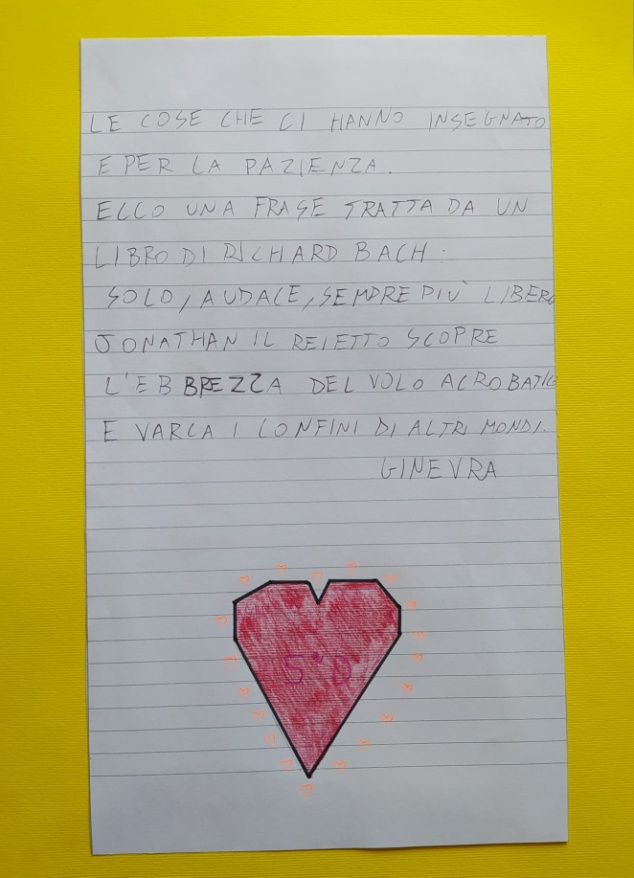 LE COSE CHE CI HANNO INSEGNATO
E PER LA PAZIENZA.
ECCO UNA FRASE TRATTA DA UN
LIBRO DI RICHARD BACH:
SOLO, AUDACE, SEMPRE PIÙ LIBERO
JONATHAN IL REIETTO SCOPRE
L'EBBREZZA DEL VOLO ACROBATICO
E VARCA I CONFINI DI ALTRI MONDI.
GINEVRA
5°D